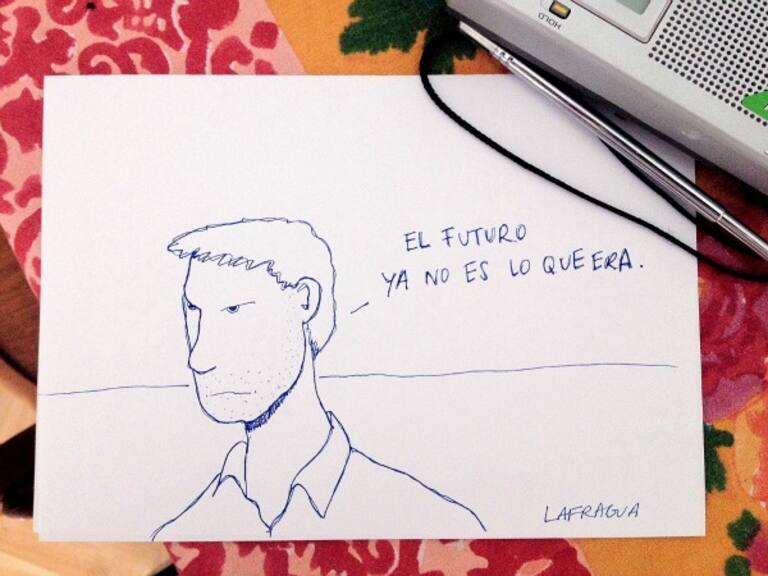 HOLD
EL FUTURO
YA NO ES LO QUE ERA.
LAFRAGUA